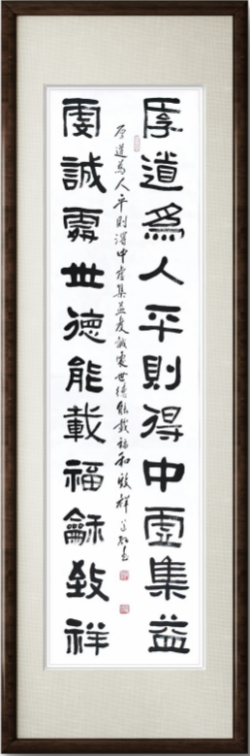 厚道爲人平則得中虛集益
虔誠處世德能載福龢致祥
厚道為人平則得中虛集益虔誠處世德能載福和致祥